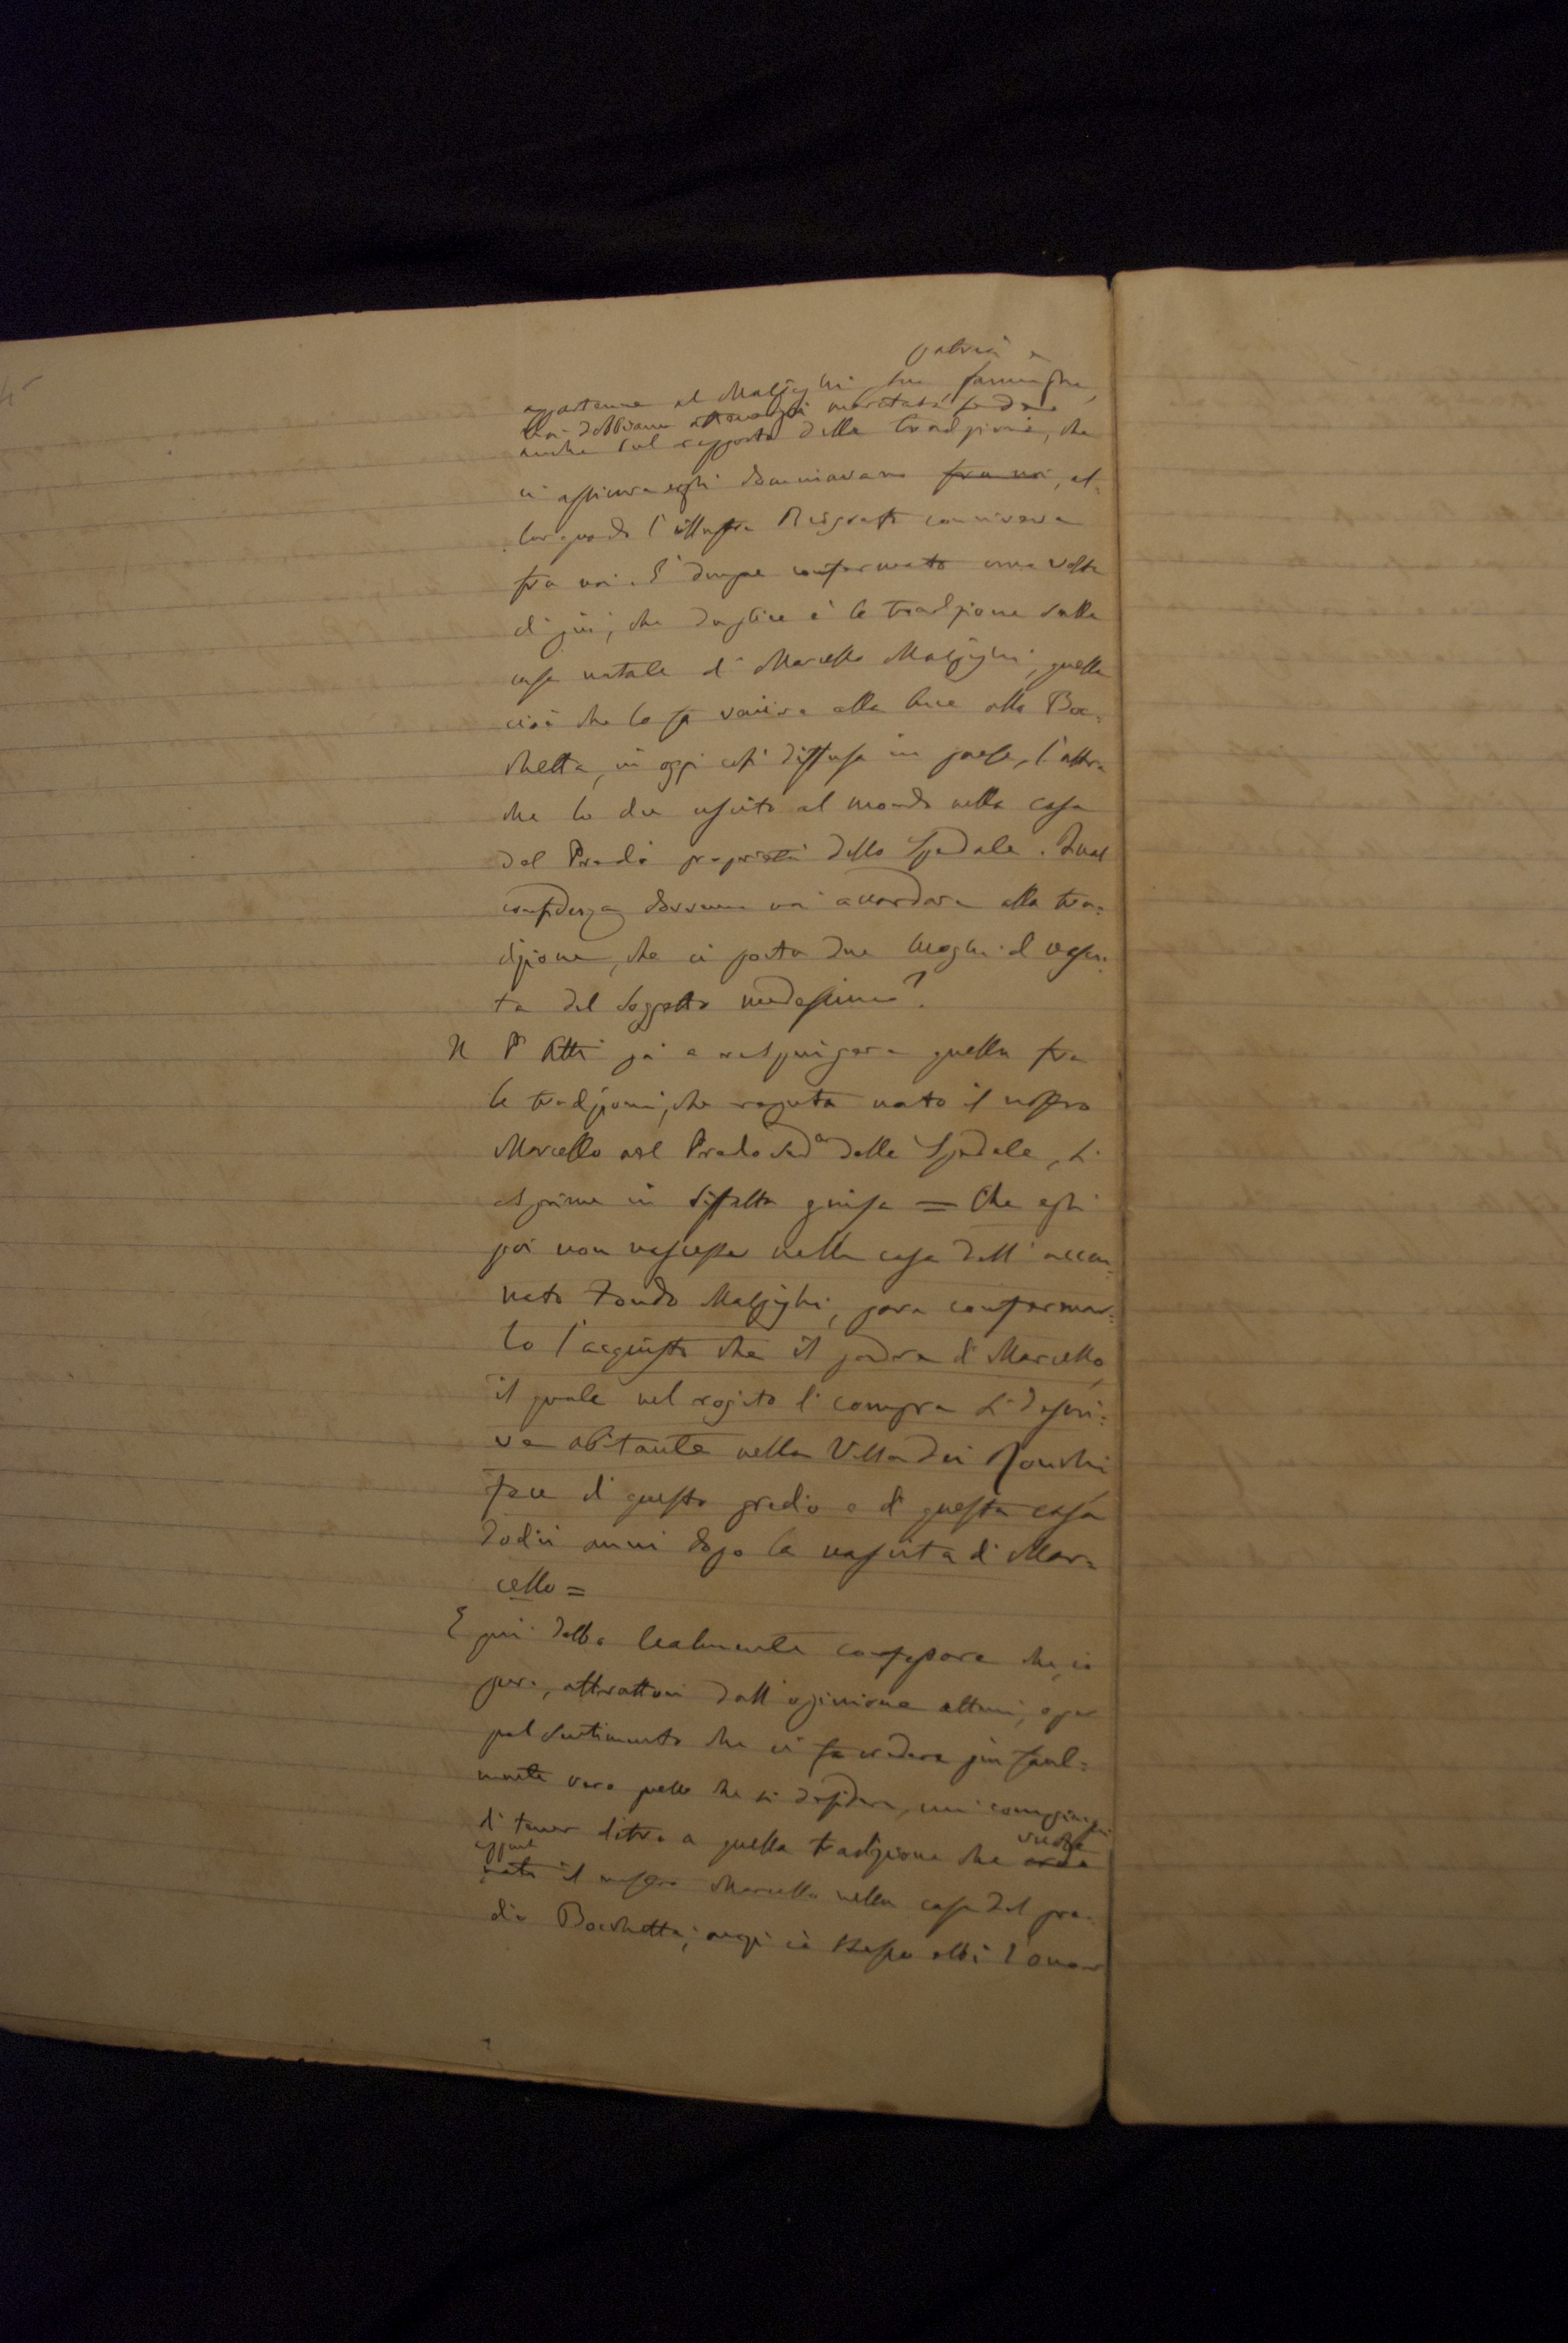 patria e
appartenne al Malpighi sua famiglia,
noi dobbiamo meritata fede
anche sul rapporto della tradizione, che
ci assicura egli dominavano fra noi, al=
lorquando l'illustre Medico conviveva
fra noi. È dunque confermato una volta
di più, che duplice è la tradizione sulla
casa natale di Marcello Malpighi, quella
cioè che lo fa venire alla luce alla Boc=
chetta, in oggi così diffusa in paese, l'altra
che lo dice uscito al mondo nella casa
del Predio proprietà dello Spedale. Qual
confidenza dovremo noi accordare alla tra=
dizione, che ci porta due luoghi di nasci=
ta del soggetto medesimo?
Il P. Atti poi a respingere quella fra
le tradizioni, che reputa nato il nostro
Marcello nel Predio sud.o dello Spedale, si
esprime in siffatta guisa = Che egli
poi non nascesse nella casa dell'accen=
nato Fondo Malpighi, pare confermar=
lo l'acquisto che il padre di Marcello,
il quale nel rogito di compra si descri=
ve abitante nella Villa dei Ronchi
fece di questo predio e di questa casa
dodici anni dopo la nascita di Mar=
cello =
E qui debbo lealmente confessare che, io
pure, attratto dall'opinione altrui, o per
quel sentimento che ci fa credere più facil=
mente vero quello che si desidera, mi compiacqui
di tener dietro a quella tradizione che vuole
nato il nostro Marcello nella casa del pre=
dio Bocchetta; anzi io stesso ebbi l'onor